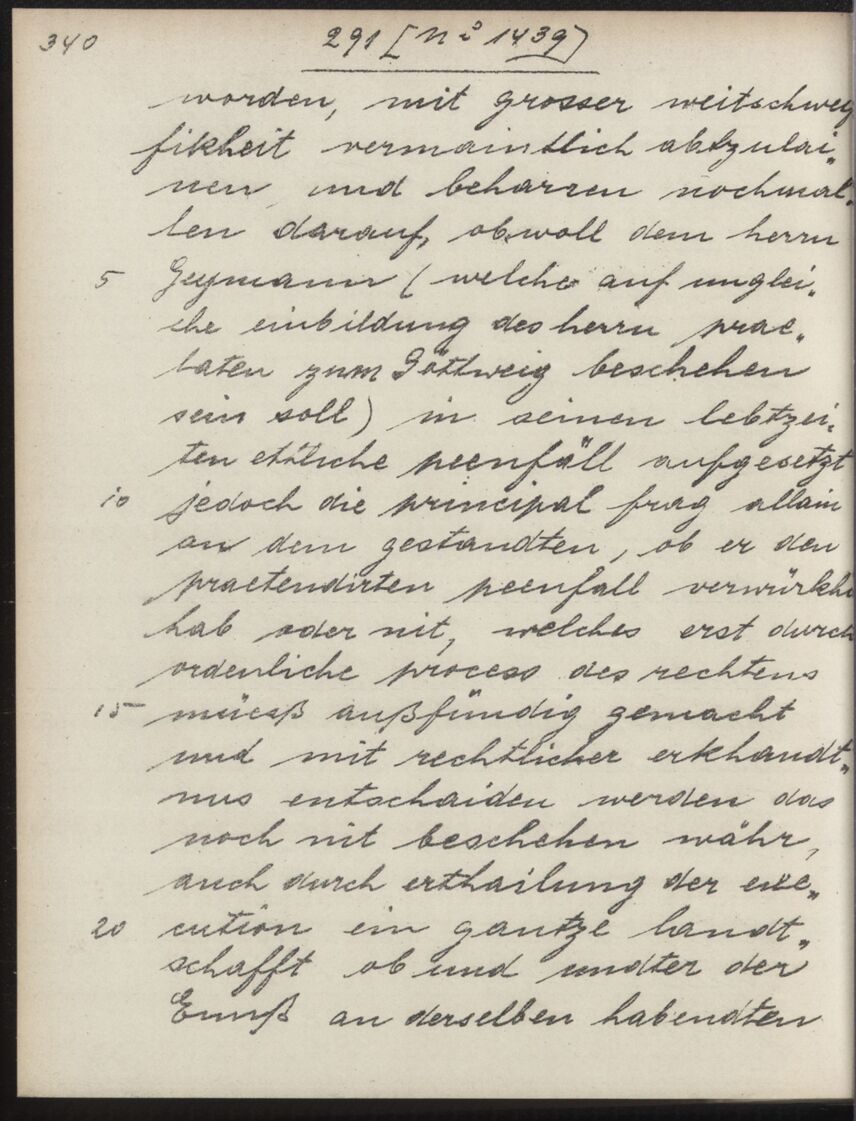 340 291 [No 1439]
worden, mit grosser weitschwey
fikheit vermaintlich abtzulai„
nen und beharren nochmal„
len darauf, obwoll dem herrn
5 Geymann (welche auf unglei„
che einbildung des herrn prae„
laten zum Göttweig beschehen
sein soll) in seinen lebtzei„
ten ettliche peenfäll aufgesetzt
10 jedoch die principal frag allain
an dem gestandten, ob er den
praetendirten peenfall verwürkht
hab oder nit, welches erst durch
ordenliche process des rechtens
15 müesß außfündig gemacht
und mit rechtlicher erkhandt„
nus entschaiden werden das
noch nit beschehen währ,
auch durch erthailung der exe„
20 cution ein gantze landt„
schafft ob und undter der
Ennß an derselben habendten